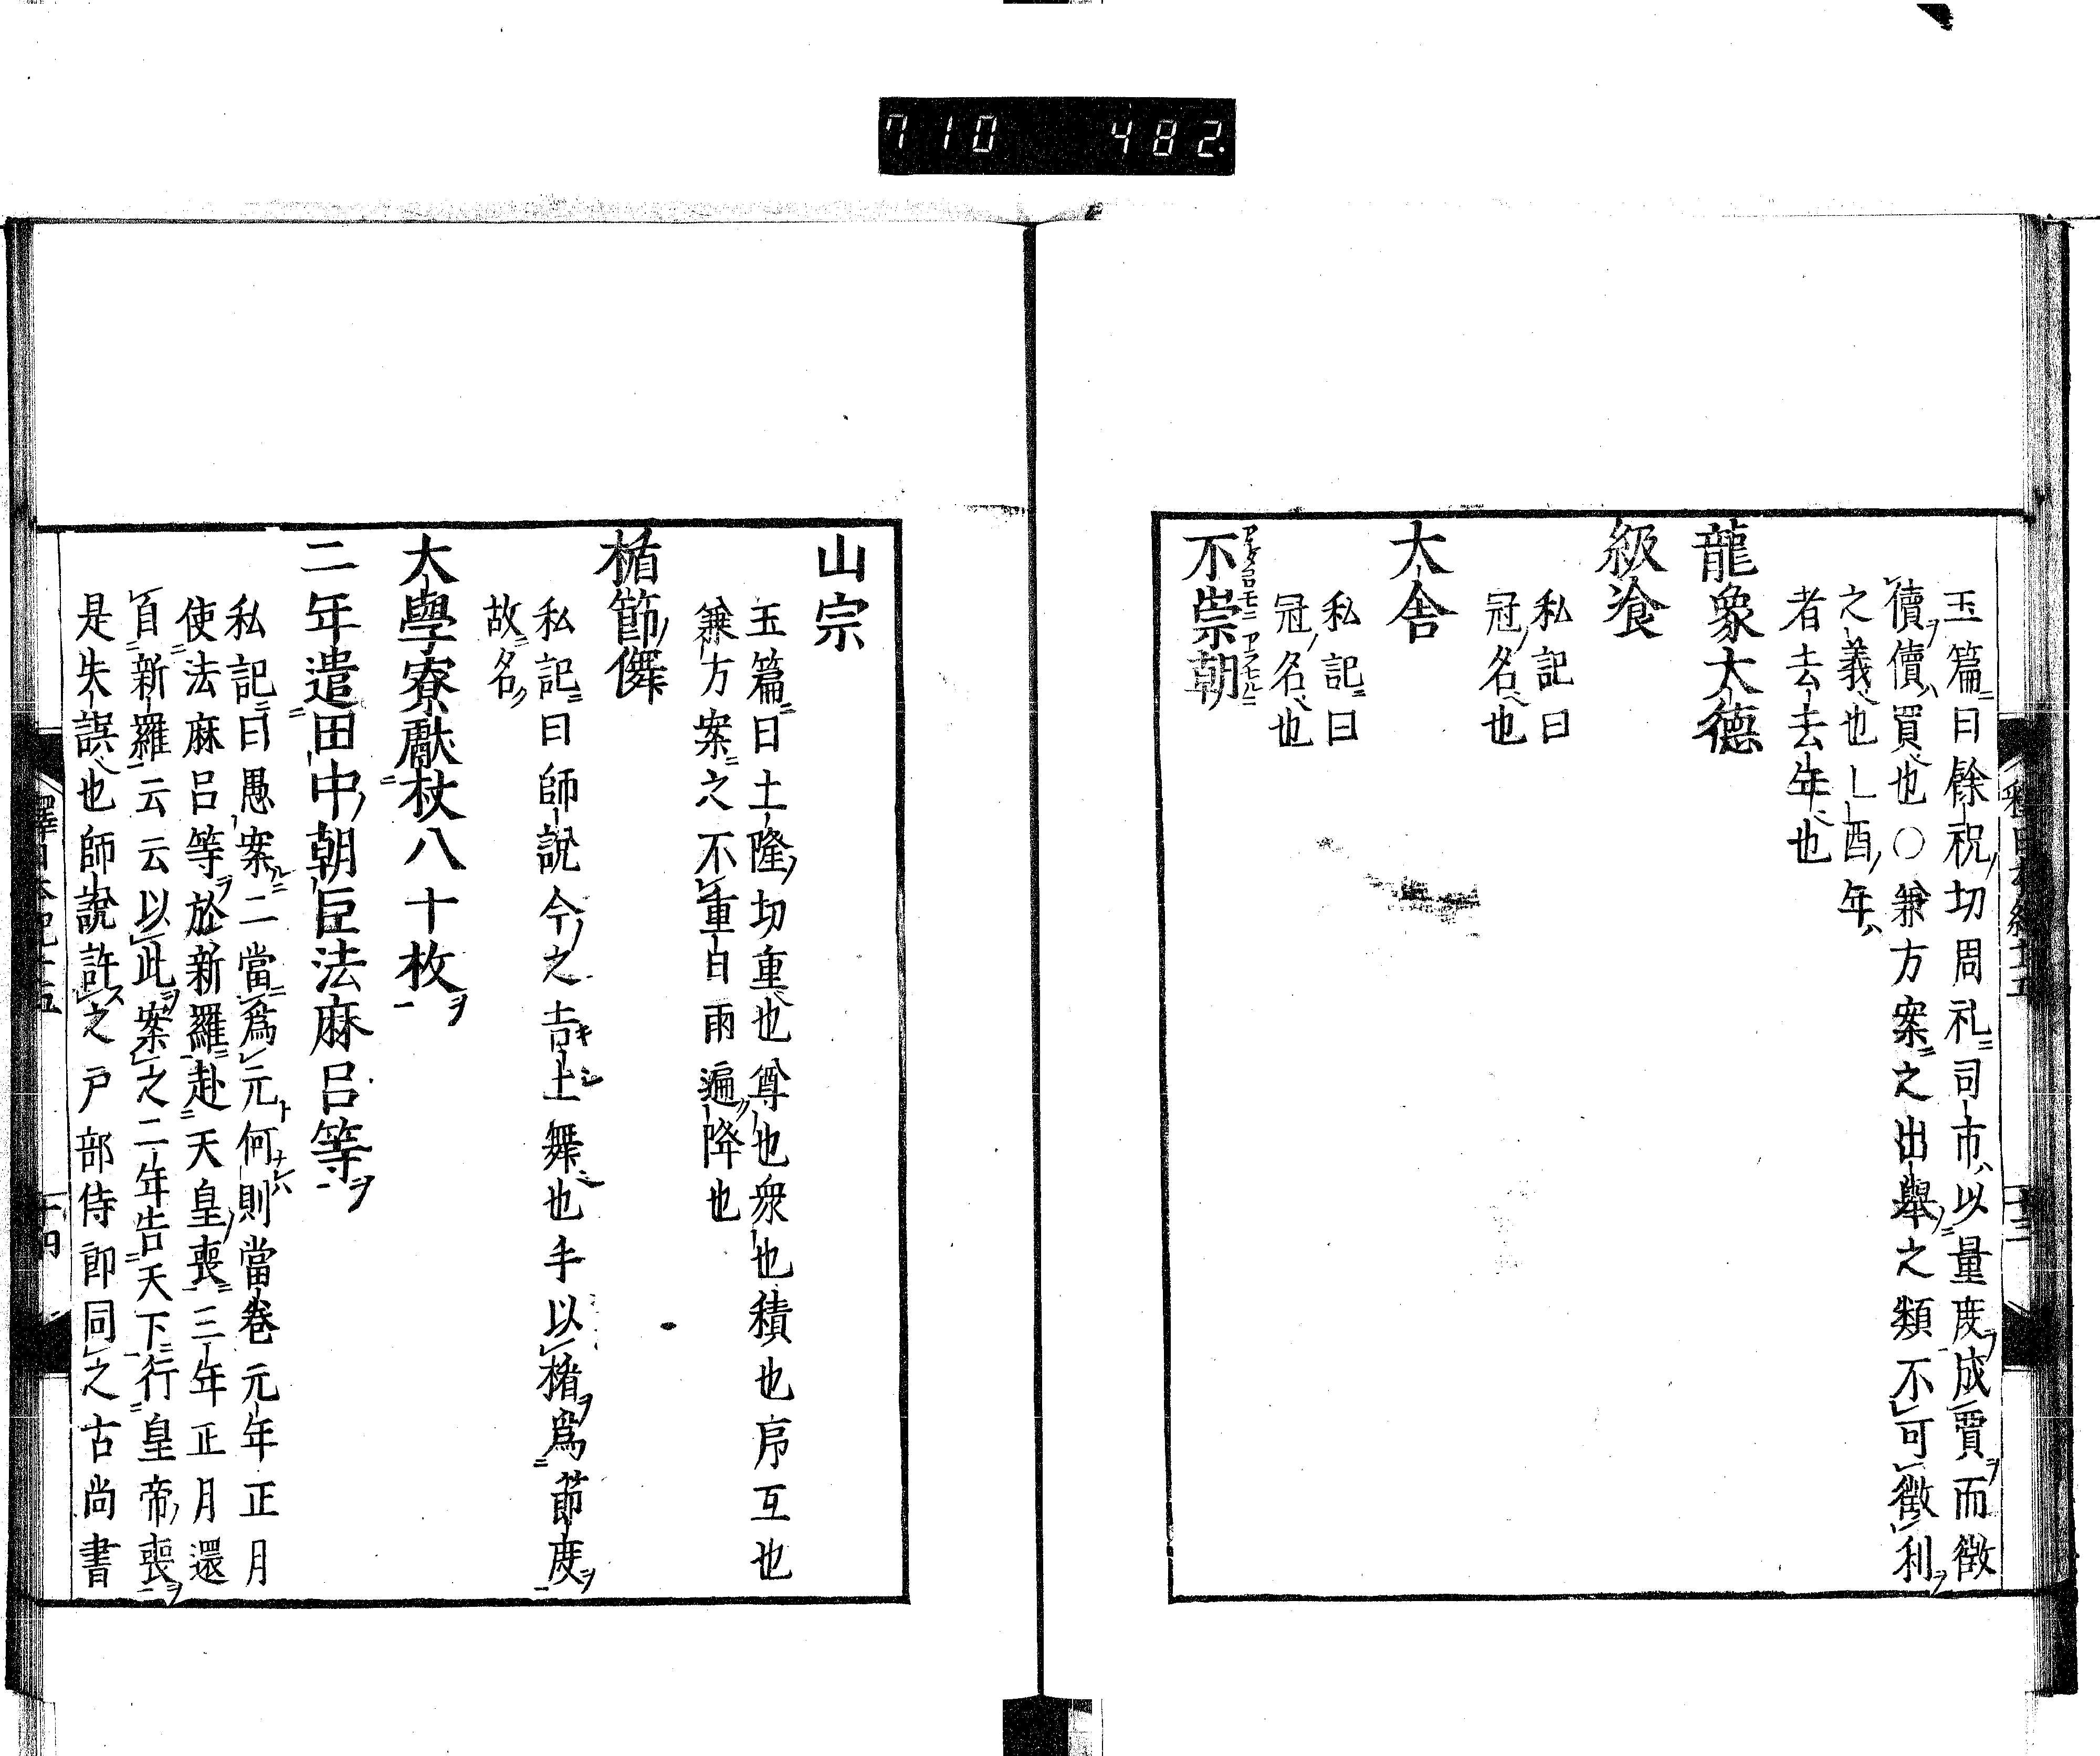 710 482.
玉篇曰餘祝切周礼司市以量度成賈而徴
儥儥買也〇兼方案之出擧之類不可徴利
之義也乚酉年
者去去年也
龍象大德
級飡
私記曰
冠名也
大舎
私記曰
冠名也
不崇朝
山宗
玉篇曰土隆切重也尊也衆也積也序互也
兼方案之不重日雨遍降也
楯節儛
私記曰師說今之吉士舞也手以楯爲節度
故名
大學寮獻杖八十枚
二年遣田中朝臣法麻呂等
私記曰愚案二當爲元何則當卷元年正月
使法麻呂等於新羅赴天皇喪三年正月還
自新羅云云以此案之二年告天下行皇帝喪
是失誤也師說許之戸部侍郎同之古尚書